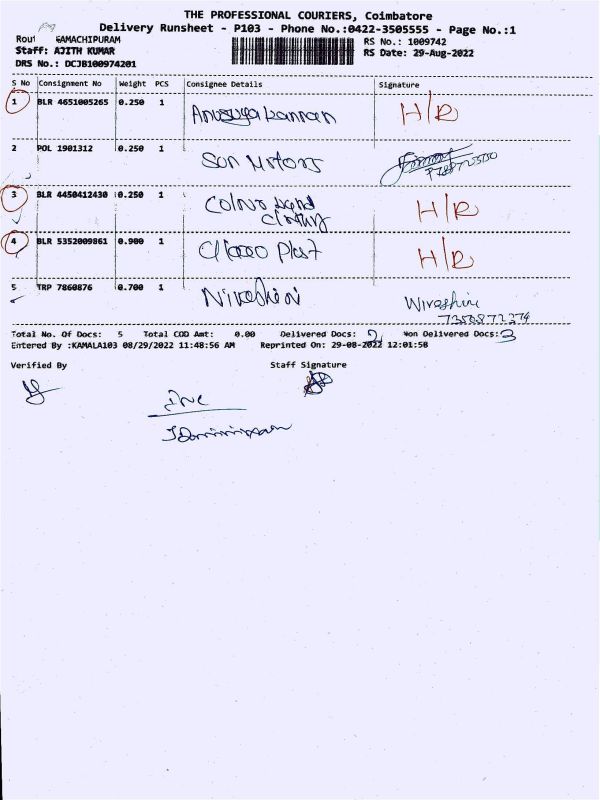 THE PROFESSIONAL COURIERS, Coimbatore
Delivery Runsheet - P103 - Phone No.:0422-3505555 - Page No.:1
Rout GAMACHIPURAM
RS No.: 1009742
Staff: AJITH KUMAR
RS Date: 29-Aug-2022
DRS No.: DCJB100974201
S No Consignment No Weight PCS Consignee Details Signature
1 BLR 4651005265 0.250 1 Anusuya kannan H/R
2 POL 1901312 0.250 1 Sun Motors
3 BLR 4450412430 0.250 1 Colour band H/R
clothing
4 BLR 5352009861 0.900 1 Plast H/R
5 TRP 7860876 0.700 1 Niveshini Niveshini
7350872274
Total No. Of Docs: 5 Total COD Amt: 0.00 Delivered Docs: 2 Non Delivered Docs: 3
Entered By :KAMALA103 08/29/2022 11:48:56 AM Reprinted On: 29-08-2022 12:01:58
Verified By Staff Signature